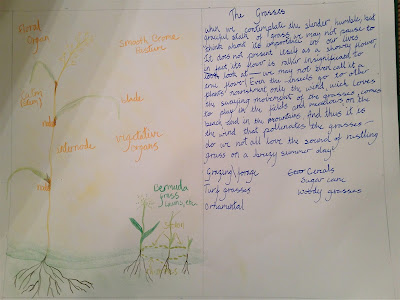 Floral
Organ
Smooth Brome
Pasture
Stem
(culm)
blade
node
internode
vegetative
organs
node
Bermuda
grass
lawns, etc.
The Grasses
When we contemplate the slender humble, but
graceful stalk of grass we may not pause to
think about its importance in our lives.
It does not present itself as a showy flower,
in fact, its flower is rather insignificant to
look at — we may not even call it a
one flower! Even the insects go to other
plants' nourishment, only the wind, which loves
the swaying movement of the grasses, comes
to play in the fields and meadows, on the
beach and in the mountains. And thus it is
the wind that pollinates the grasses —
do we not all love the sound of rustling
grass on a breezy summer day?
Grazing/forage
Cereals
Turf grasses
Sugar cane
Woody grasses
Ornamental